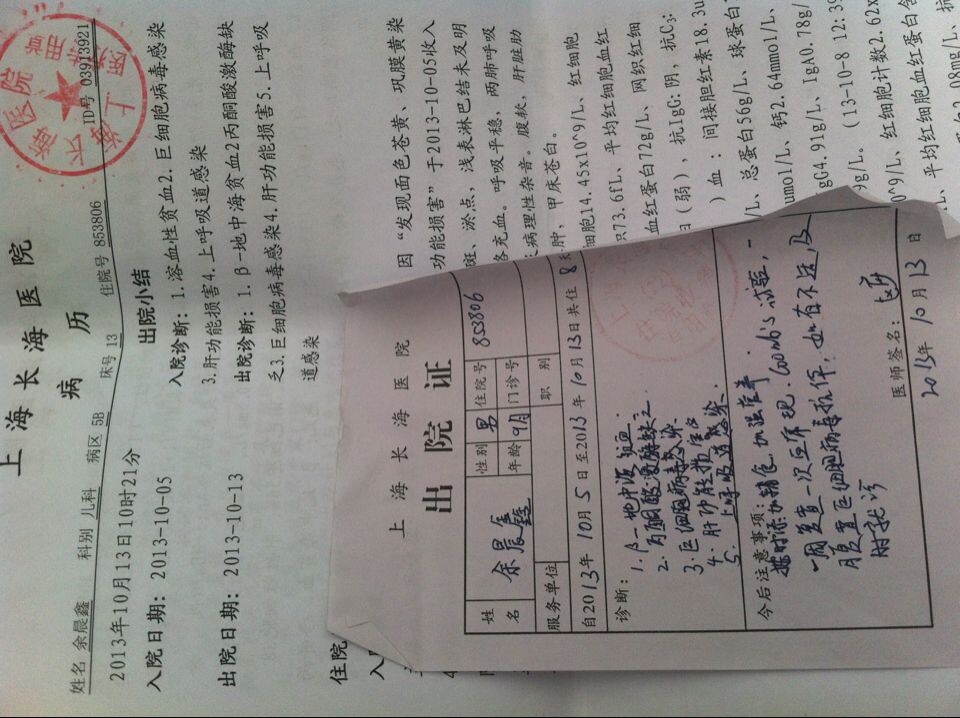 上海长海医院
病 历
姓名 余晨鑫 科别 儿科 病区 5B 床号 13 住院号 853806 ID号 03913921
2013年10月13日10时21分 出院小结
入院日期: 2013-10-05 入院诊断: 1.溶血性贫血2.巨细胞病毒感染
3.肝功能损害4.上呼吸道感染
出院日期: 2013-10-13 出院诊断: 1.β-地中海贫血2丙酮酸激酶缺
乏3.巨细胞病毒感染4.肝功能损害5.上呼吸
道感染
因“发现面色苍黄、巩膜黄染
功能损害”于2013-10-05收入
斑、淤点,浅表淋巴结未及明
各充血。呼吸平稳,两肺呼吸
病理性杂音。腹软,肝脏肋
肿,甲床苍白。
细胞14.45x10^9/L、红细胞
73.6fl、平均红细胞血红
血红蛋白72g/L、网织红细
(弱),抗IgG:阴,抗C3:
)血:间接胆红素18.3u
/L、总蛋白56g/L、球蛋白
umol/L、钙2.64mmol/L、
gG4.91g/L、IgA0.78g/
9g/L。(13-10-8 12:39
0^9/L、红细胞计数2.62x
L、平均红细胞血红蛋白含
2.08mg/L、抗
上海长海医院
出院证
姓名 余晨鑫 性别 男 住院号 853806
年龄 9月 门诊号
服务单位 职别
自2013年10月5日至2013年10月13日共住8天
诊断:
1. β-地中海贫血
2. 丙酮酸激酶缺乏
3. 巨细胞病毒感染
4. 肝功能损害
5. 上呼吸道感染
今后注意事项:
按时添加辅食,加强营养
一周复查一次血常规、Coombs's试验,一
月复查巨细胞病毒抗体,如有不适,及
时就诊
医师签名:
2013年10月13日